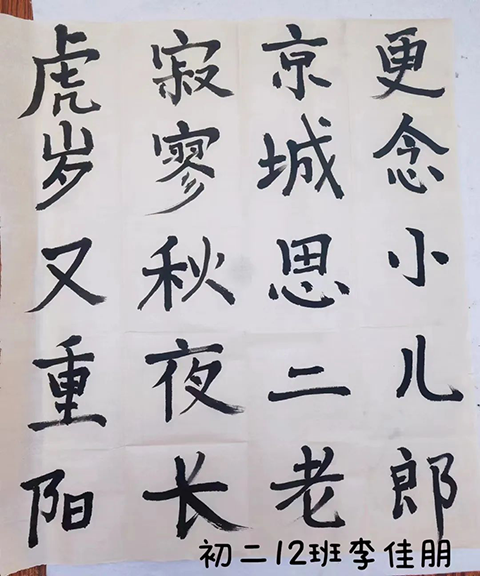 虎岁又重阳
寂寥秋夜长
京城思二老
更念小儿郎
初二12班李佳朋